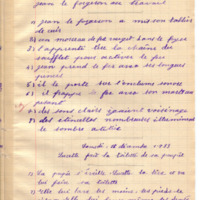 Jean le forgeron au travail
1) Jean le forgeron a mis son tablier
de cuir
2) un morceau de fer rougit dans le foyer
3) l'apprenti tire la chaîne du
soufflet pour activer le feu
4) Jean prend le fer avec ses longues
pinces
5) il le porte sur l'enclume sonore
6) il frappe le fer avec son marteau
pesant
7) des sons clairs égaient le voisinage
8) des étincelles nombreuses illuminent
le sombre atelier
Samedi 12 décembre
Lucette fait la toilette de sa poupée
1) La poupée s'éveille Lucette la lève et va
lui faire sa toilette
2) Elle lui lave les mains, les pieds